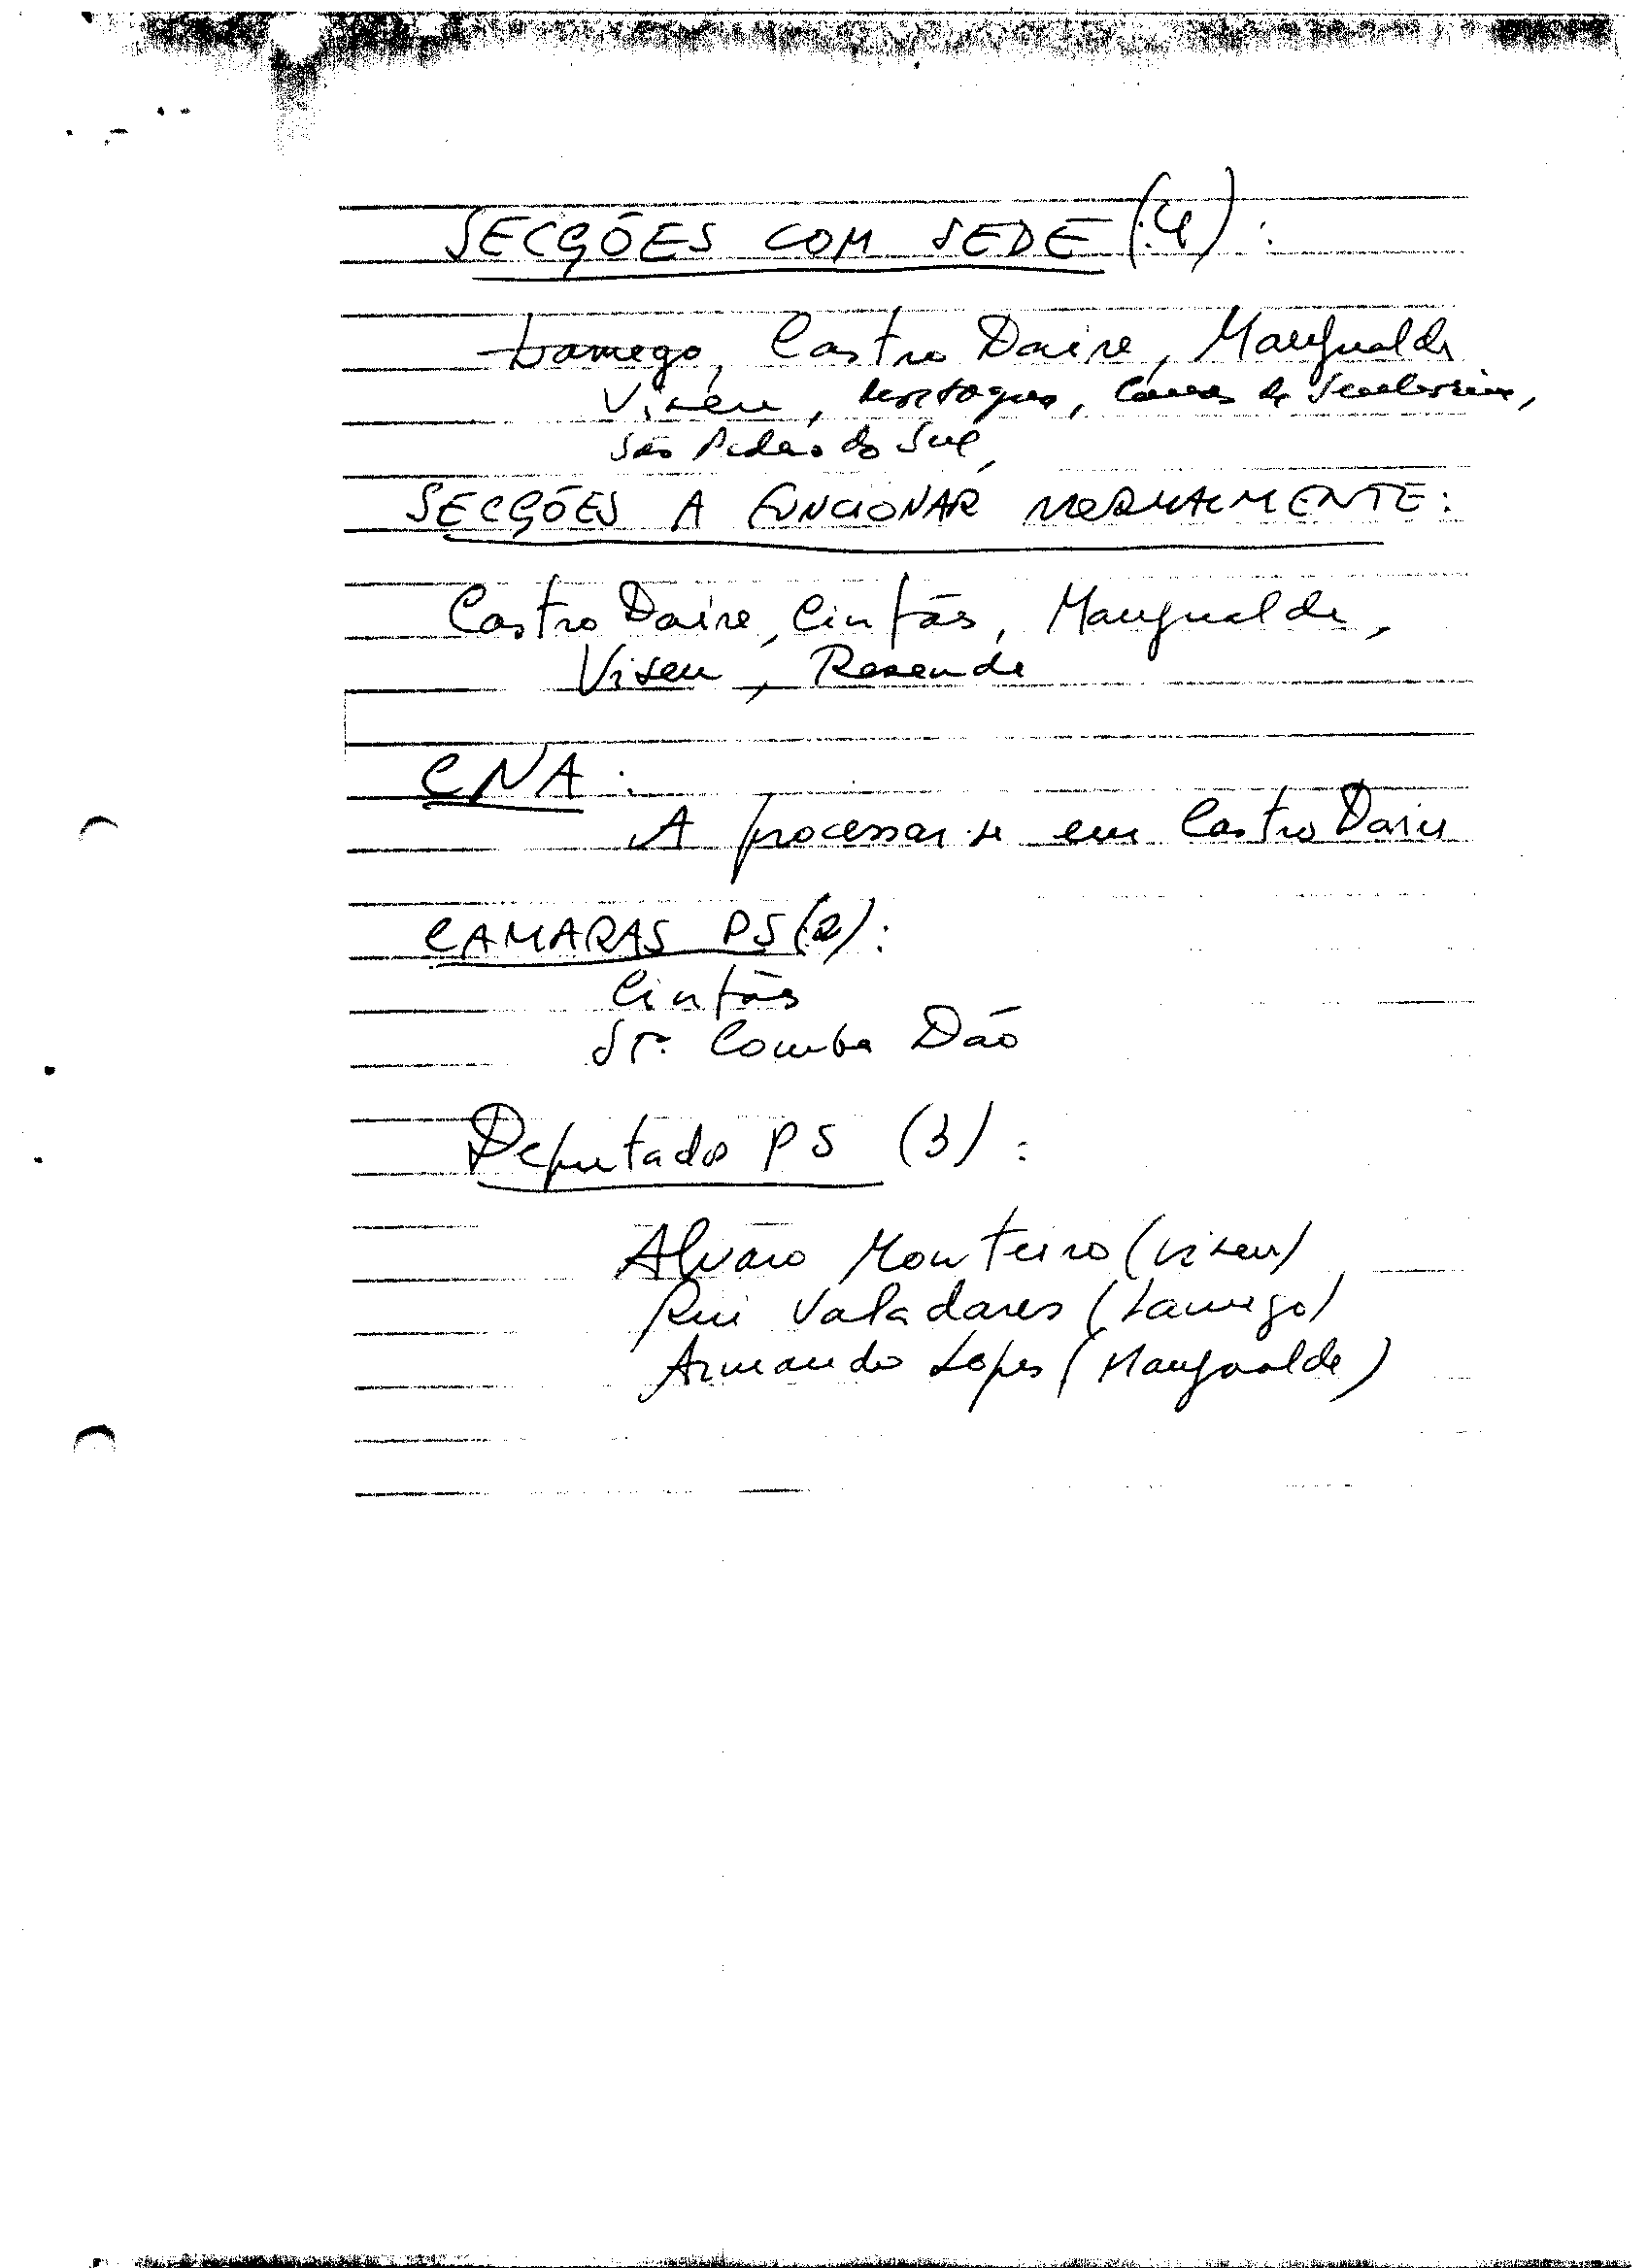 SECÇÕES COM SEDE (4):
Lamego, Castro Daire, Mangualde
Viseu, Mortágua, Carregal de,
São Pedro do Sul,
SECÇÕES A FUNCIONAR NORMALMENTE:
Castro Daire, Cinfães, Mangualde,
Viseu, Resende
CNA:
A processar-se em Castro Daire
CAMARAS PS (2):
Cinfães
Stª. Comba Dão
Deputados PS (3):
Alvaro Monteiro (Viseu)
Rui Valadares (Lamego)
Armando Lopes (Mangualde)